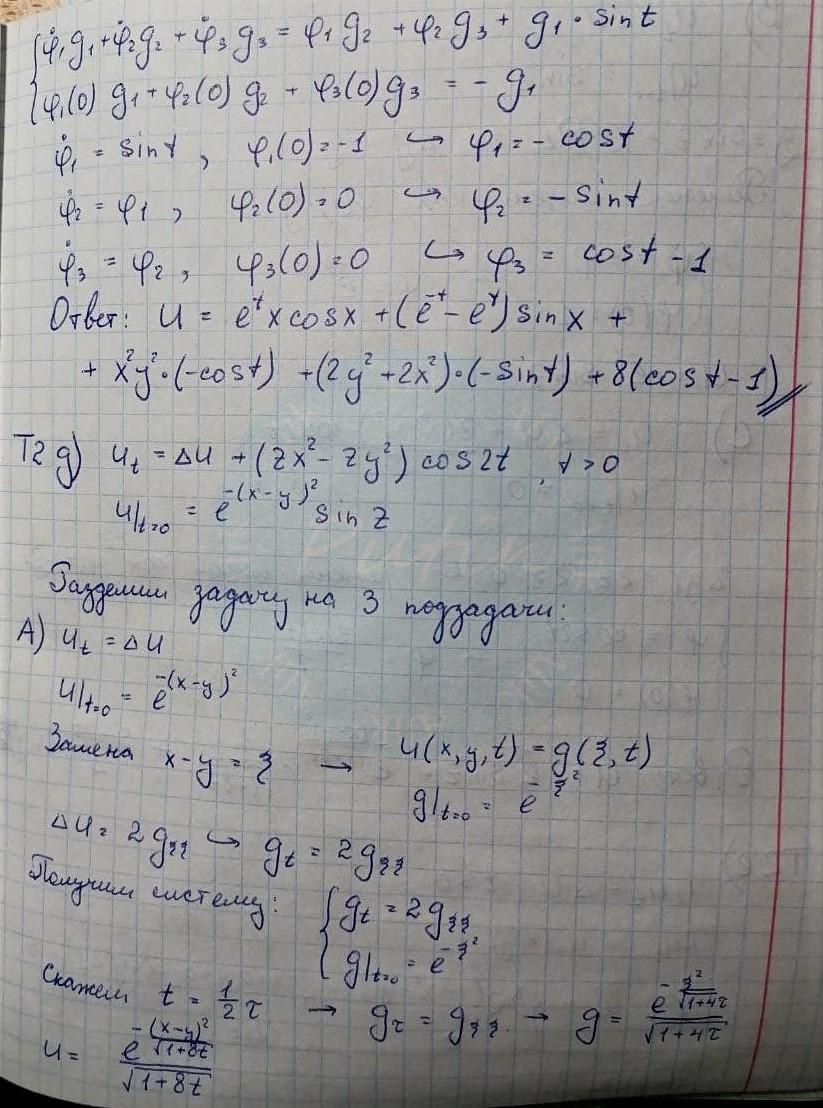 { φ̇₁g₁ + φ̇₂g₂ + φ̇₃g₃ = φ₁g₂ + φ₂g₃ + g₁·sint
{ φ₁(0)g₁ + φ₂(0)g₂ + φ₃(0)g₃ = -g₁
φ̇₁ = sint, φ₁(0) = -1 ↪ φ₁ = -cost
φ̇₂ = φ₁, φ₂(0) = 0 ↪ φ₂ = -sint
φ̇₃ = φ₂, φ₃(0) = 0 ↪ φ₃ = cost - 1
Ответ: U = e^t x cosx + (e^{-t} - e^t) sin x +
+ x²y²·(-cost) + (2y² + 2x²)·(-sint) + 8(cost - 1)
T2 g) U_t = ΔU + (zx² - zy²) cos2t, t > 0
U|_{t=0} = e^{-(x-y)²} sin z
Разделим задачу на 3 подзадачи:
А) U_t = ΔU
U|_{t=0} = e^{-(x-y)²}
Замена x-y = ξ → U(x,y,t) = g(ξ,t)
g|_{t=0} = e^{-ξ²}
ΔU = 2g_{ξξ} ↪ g_t = 2g_{ξξ}
Получим систему: { g_t = 2g_{ξξ}
{ g|_{t=0} = e^{-ξ²}
Скажем t = 1/2 τ → g_τ = g_{ξξ} → g = e^{-ξ²/√(1+4τ)} / √(1+4τ)
U = e^{-(x-y)²/√(1+8t)} / √(1+8t)